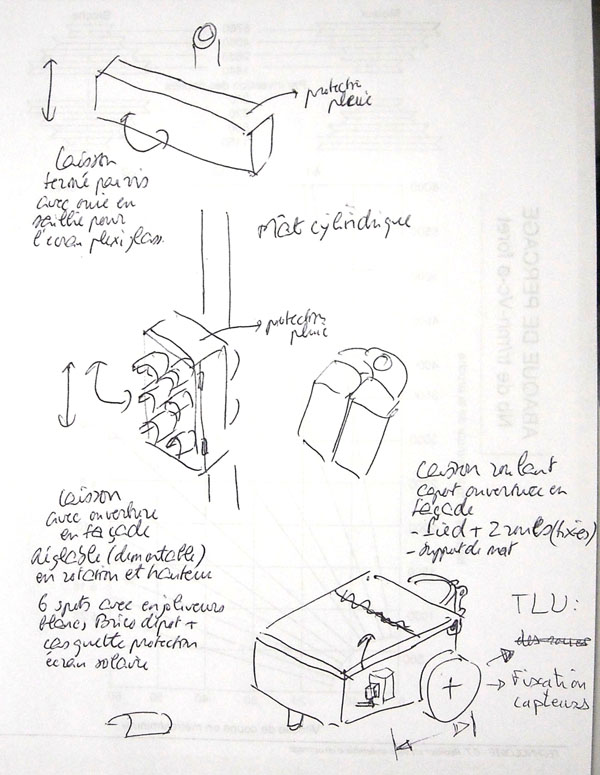 protection
pleine
Caisson
fermé par vis
avec ouie en
saillie pour
l'écran plexiglass.
Mât cylindrique
protection
pleine
Caisson
avec ouverture
en façade
réglable (démontable)
en rotation et hauteur
6 spots avec enjoliveurs
blancs Brico dépot +
casquette protection
écran solaire
Caisson roulant
capot ouverture en
façade
- 1 pied + 2 roues (fixes)
- support de mat
TLU:
des roues
→ Fixation
capteurs
ABAQUE DE PERÇAGE